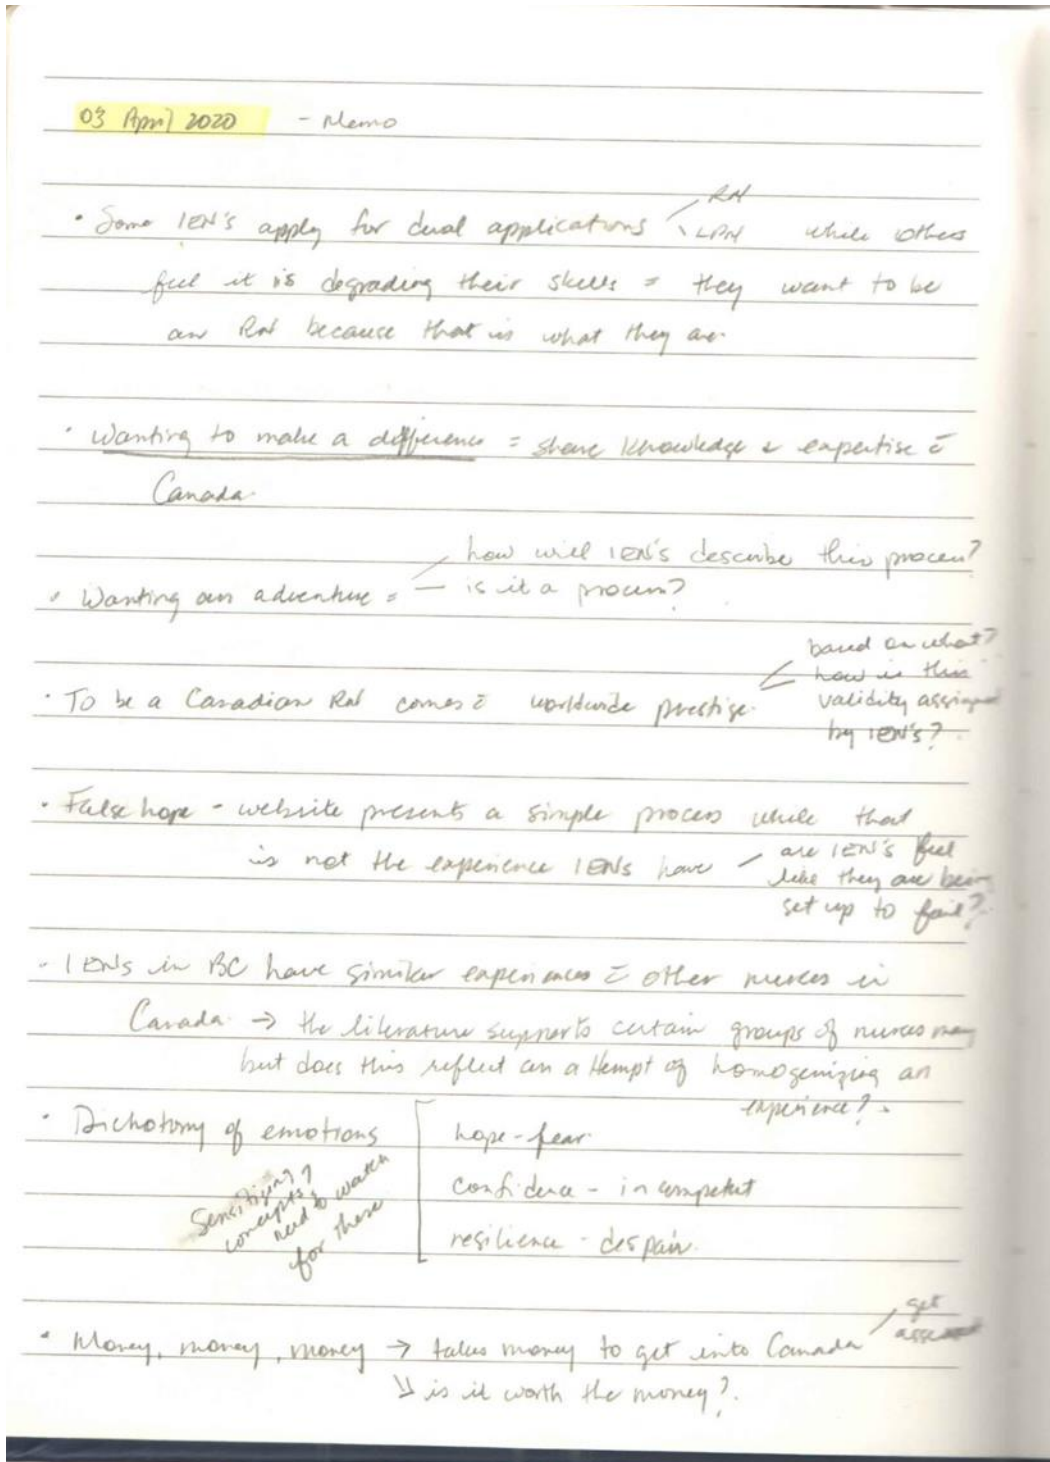 03 April 2020 - Memo
RN
• Some IEN's apply for dual applications LPN while others
feel it is degrading their skills = they want to be
an RN because that is what they are.
• Wanting to make a difference = share knowledge & expertise c̄
Canada.
how will IEN's describe this process?
• Wanting an adventure = — is it a process?
based on what?
how is this
• To be a Canadian RN comes c̄ worldwide prestige. validity assigned
by IEN's?
• False hope - website presents a simple process while that
is not the experience IENs have - are IEN's feel
like they are being
set up to fail?
- IENs in BC have similar experiences c̄ other nurses in
Canada → the literature supports certain groups of nurses may
but does this reflect an attempt of homogenizing an
experience?
• Dichotomy of emotions
hope - fear
confidence - incompetent
resilience - despair
Sensitizing
concepts?
need to watch
for these
get
• Money, money, money → takes money to get into Canada
↳ is it worth the money?